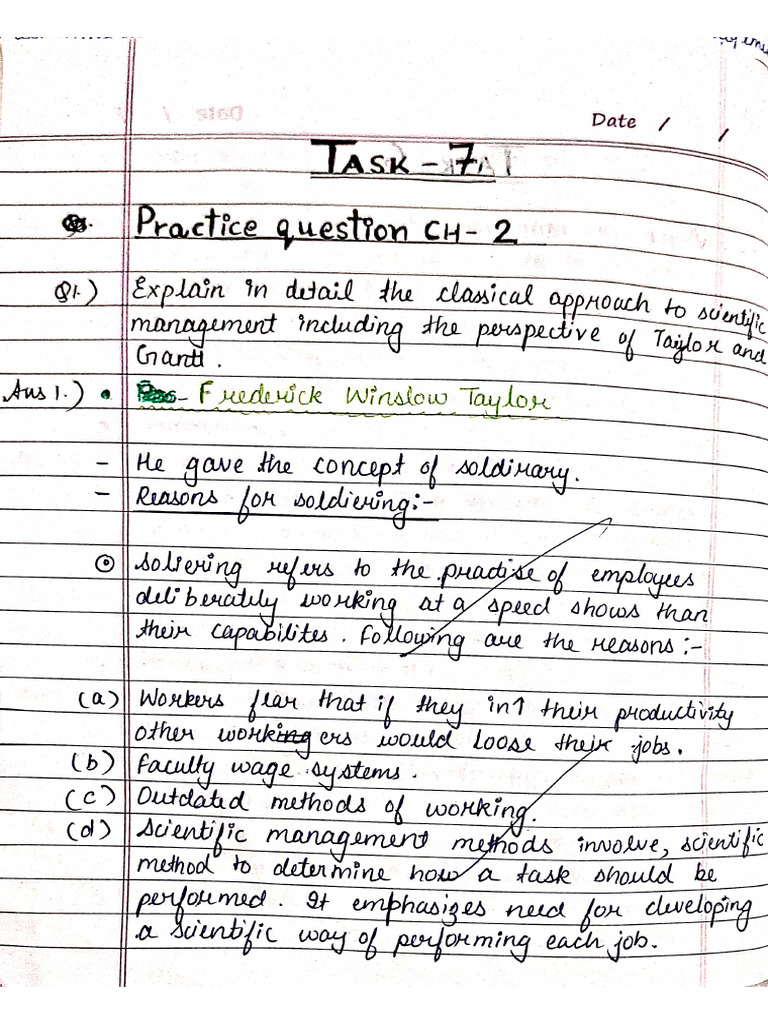 Date / /
TASK - 7
Practice question CH- 2
Q1.) Explain in detail the classical approach to scientific
management including the perspective of Taylor and
Grantt.
Ans 1.) • - Frederick Winslow Taylor
- He gave the concept of soldirary.
- Reasons for soldiering:-
⊙ Soliering refers to the practise of employees
deliberately working at a speed shows than
their capabilites. Following are the reasons :-
(a) Workers fear that if they in↑ their productivity
other workers would loose their jobs.
(b) Faculty wage systems.
(c) Outdated methods of working.
(d) Scientific management methods involve, scientific
method to determine how a task should be
performed. It emphasizes need for developing
a scientific way of performing each job.